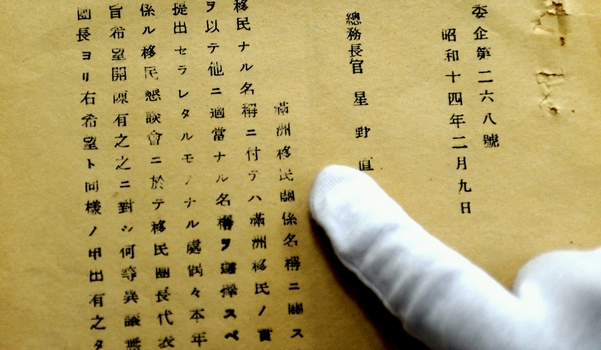 委企第二六八號
昭和十四年二月九日
總務長官 星野直
滿洲移民關係名稱ニ關ス
移民ナル名稱ニ付テハ滿洲移民ノ實
ヲ以テ他ニ適當ナル名稱ヲ選擇スベ
提出セラレタルモノナル處偶々本年
係ル移民懇談會ニ於テ移民團長代表
旨希望開陳有之之ニ對シ何等異議無
團長ヨリ右希望ト同樣ノ申出有之タ